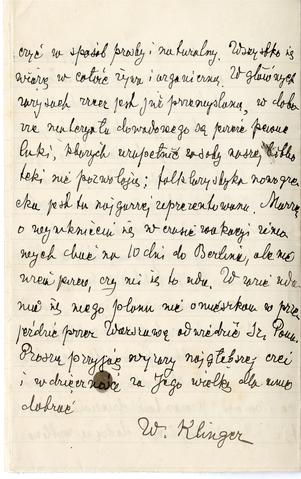 czyć w sposób prosty i naturalny. Wszystko się
wiąże w całość żywą i organiczną. W głównych
zarysach rzecz jest już przemyślana, w dobo-
rze materyału dowodowego są jeszcze pewne
luki, których uzupełnić zasoby naszej biblio-
teki nie pozwalają; folklorystyka nowogrec-
ka jest tu najgorzej reprezentowana. Marzę
o wymknięciu się w czasie wakacji zimo-
wych choć na 10 dni do Berlina, ale nie
wiem jeszcze, czy mi się to uda. W razie uda-
nia się mego planu nie omieszkam w prze-
jeździe przez Warszawę odwiedzić Sz. Pana.
Proszę przyjąć wyrazy najgłębszej czci
i wdzięczności za Jego wielką dla mnie
dobroć
W. Klinger